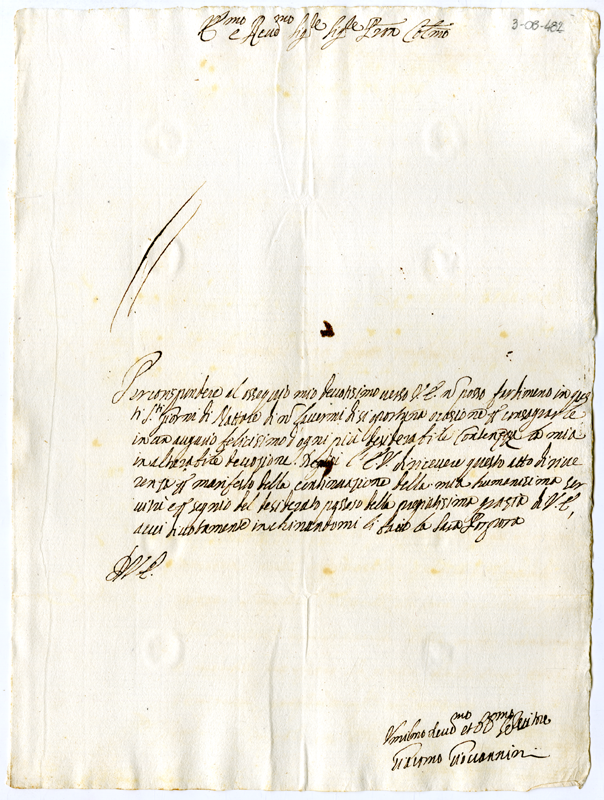 3-08-482
E.mo e Reud.mo Sig.re Sig.re P.ron Col.mo
Per corispondere al ossequio mio deuotissimo uerso V.E. nō posso far di meno in ques
ti S.ti giorni di Natale di nō seruirmi di si oportuna ocasione p consegrarle
in un augurio felicissimo d'ogni più desiderabile Contenteza la mia
inalterabile deuozione. Degnisi l'E.V. di riceuere questo atto di riue
renza p manifesto della continuazione della mia humanissima ser
uitù e p segnio del desiderato possesso della pregiatissima grazia di V.E,
a cui diuotamente inchinandomi li bacio la Sacra Porpora
D V.E.
Vmilmo deuo.mo et Ob.mo Seruitore
Giacomo Giouannini